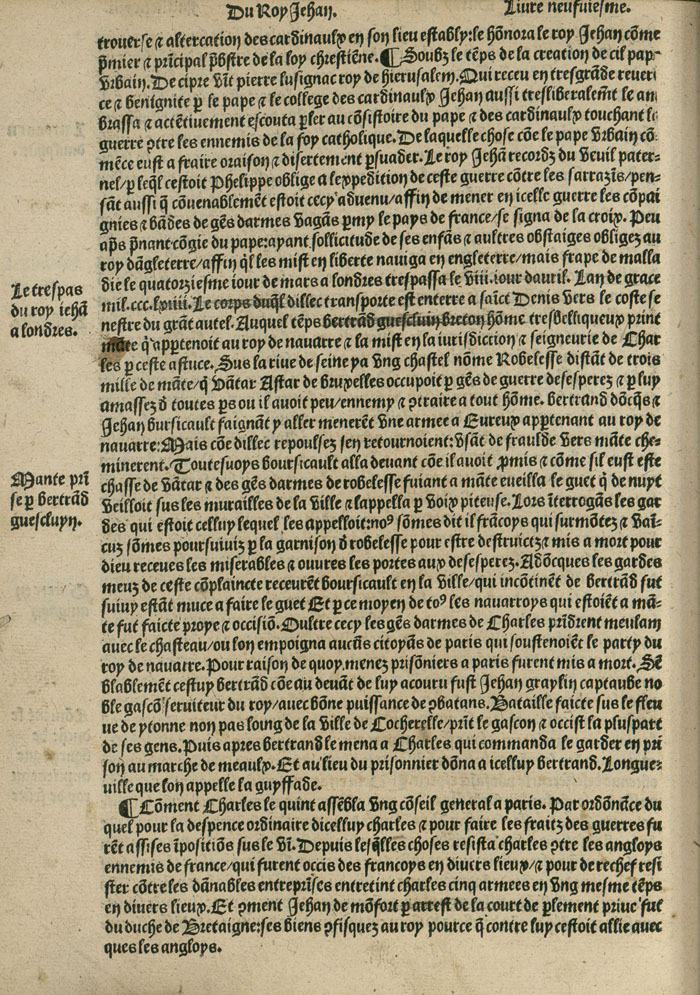 Du Roy Jehan.
Liure neufuiesme.
trouerse ⁊ altercation des cardinaulx en son lieu estably: le hōnora le roy Jehan cōme
p̄mier ⁊ prīcipal p̄bstre de la loy chrestiēne. ¶ Soubz le tēps de la creation de cil pap
Vrbain. De cipre vīt pierre lusignac roy de hierusalem. Qui receu en tresgrāde reueri
ce ⁊ benignite p̱ le pape ⁊ le college des cardinaulx Jehan aussi tresliberalem̄t le am
brassa ⁊ actētiuement escouta p̱ler au cōsistoire du pape ⁊ des cardinaulx touchant la
guerre ꝯtre les ennemis de la foy catholique. De laquelle chose cōe le pape Vrbain cō
mēce eust a fraire oraison ⁊ disertement p̱suader. Le roy Jehā recordz du veuil pater-
nel/ p̱ leq̄l cestoit Phelippe oblige a lexpedition de ceste guerre cōtre les sarrazīs/ pen-
sāt aussi q̄ cōuenablemēt estoit cecy aduenu/ affin de mener en icelle guerre les cōpai
gnies ⁊ bādes de gēs darmes vagās p̱my le pays de france/ se signa de la croix. Peu
ap̄s p̄nant cōgie du pape: ayant sollicitude de ses enfās ⁊ aultres obstaiges obligez au
roy dāgleterre/ affin q̄l les mist en liberte nauiga en engleterre/ mais frape de malla
die le quatorziesme iour de mars a londres trespassa le viii. iour dauril. Lan de grace
mil. ccc. lxiiii. Le corps duq̄l dillec transporte est enterre a saīct Denis vers le coste se
nestre du grāt autel. Auquel tēps bertrād guescluin breton hōme tresbelliqueux print
māte q̄ apꝑtenoit au roy de nauarre ⁊ la mist en la iurisdiction ⁊ seigneurie de Char
les p̱ ceste astuce. Sus la riue de seine ya vng chastel nōme Robelesse distāt de trois
mille de māte/ q̄ vātar Astar de bruxelles occupoit p̱ gēs de guerre desesperez ⁊ p̱ luy
amassez d̄ toutes p̱s ou il auoit peu/ ennemy ⁊ ꝯtraire a tout hōme. bertrand dōcq̄s ⁊
Jehan bursicault faignāt y aller menerēt vne armee a Eureux apꝑtenant au roy de
nauarre: Mais cōe dillec repoulsez sen retournoient: vsāt de fraulde vers māte che-
minerent. Toutesuoys boursicault alla deuant cōe il auoit ꝓmis ⁊ cōme sil eust este
chasse de vātar ⁊ des gēs darmes de robelesse fuiant a māte eueilla le guet q̄ de nuyt
veilloit sus les murailles de la ville ⁊ lappella p̱ voix piteuse. Lors īterrogās les gar
des qui estoit celluy lequel les appelloit: noꝰ sōmes dit il frācoys qui surmōtez ⁊ vaī-
cuz sōmes poursuiuiz p̱ la garnison d̄ robelesse pour estre destruictz ⁊ mis a mort pour
dieu receues les miserables ⁊ ouures les portes aux desesperez. Adōcques les gardes
meuz de ceste cōplaincte receurēt boursicault en la ville/ qui incōtinēt de bertrād fut
suiuy estāt muce a faire le guet Et p̱ ce moyen de toꝰ les nauarroys qui estoiēt a mā-
te fut faicte proye ⁊ occisiō. Oultre cecy les gēs darmes de Charles prīdrent meulam
auec le chasteau/ ou lon empoigna aucūs citoyās de paris qui soustenoiēt le party du
roy de nauarre. Pour raison de quoy menez prisōniers a paris furent mis a mort. Sē
blablemēt cestuy bertrād cōe au deuāt de luy acouru fust Jehan graylin captaube no
ble gascō seruiteur du roy/ auec bōne puissance de ꝯbatans. Bataille faicte sus le fleu
ue de ytonne non pas loing de la ville de Cocherelle/ prīt le gascon ⁊ occist la pluspart
de ses gens. Puis apres bertrand le mena a Charles qui commanda le garder en pri
son au marche de meaulx. Et au lieu du prisonnier dōna a icelluy bertrand. Longue-
uille que lon appelle la guyffade.
¶ Cōment Charles le quint assēbla vng cōseil general a paris. Par ordōnāce du
quel pour la despence ordinaire dicelluy charles ⁊ pour faire les fraitz des guerres fu
rēt assises īpositiōs sus le vī. Depuis lesq̄lles choses resista charles ꝯtre les angloys
ennemis de france/ qui furent occis des francoys en diuers lieux/ ⁊ pour de rechef resi
ster cōtre les dānables entreprīses entretint charles cinq armees en vng mesme tēps
en diuers lieux. Et ꝯment Jehan de mōfort p̱ arrest de la court de p̱lement priue fut
du duche de Bretaigne: ses biens ꝯfisquez au roy pource q̄ contre luy cestoit allie auec
ques les angloys.
Le trespas
du roy iehā
a londres.
Mante prī
se p̱ bertrād
guescluyn.